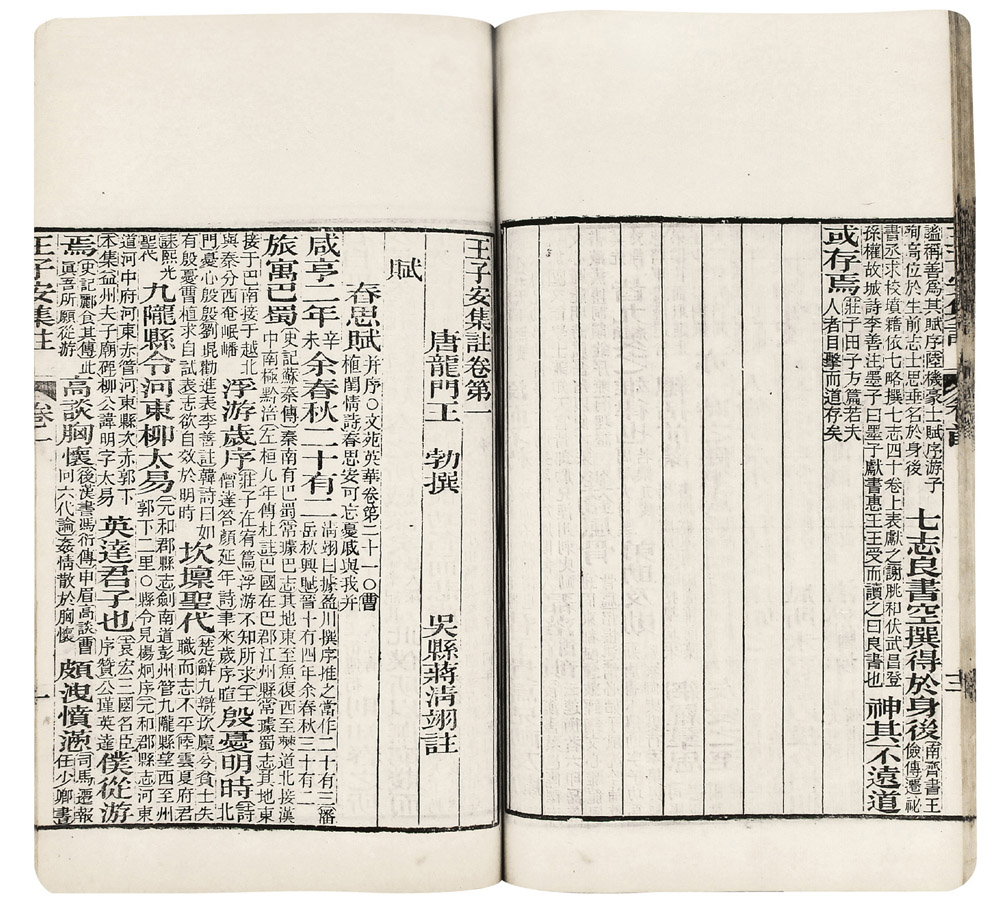 謐稱善爲其賦序陸機豪士賦序游子
殉高位於生前志士思垂名於身後
七志良書空撰得於身後
南齊書王
儉傳遷祕
書丞求校墳籍依七略撰七志四十卷上表獻之謝朓和伏武昌登
孫權故城詩李善注墨子曰墨子獻書惠王王受而讀之曰良書也
神其不遠道
或存焉
莊子田子方篇若夫
人者目擊而道存矣
王子安集註卷第一
唐龍門王 勃撰 吳縣蔣清翊註
賦
春思賦
并序○文苑英華卷第二十一○曹
植閨情詩春思安可忘憂戚與我并
咸亨二年
辛
未
余春秋二十有二
清翊曰據盈川撰序推之當作二十有三潘
岳秋興賦晉十有四年余春秋三十有二
旅寓巴蜀
史記蘇秦傳秦南有巴蜀常璩巴志其地東至魚復西至僰道北接漢
中南極黔涪左桓九年傳杜註巴國在巴郡江州縣常璩蜀志其地東
接于巴南接于越北
與秦分西奄岷嶓
浮游歲序
莊子在宥篇浮游不知所求王
僧達答顏延年詩聿來歲序暄
殷憂明時
詩
北
門憂心殷殷劉琨勸進表李善註韓詩曰如
有殷憂曹植求自試表志欲自效於明時
坎壈聖代
楚辭九辯坎廩兮貧士失
職而志不平陸雲夏府君
誄熙光
聖代
九隴縣令河東柳太易
元和郡縣志劍南道彭州管九隴縣望西至州
郭下二里○縣令見楊炯序元和郡縣志河東
道河中府河東赤管河東縣次赤郭下
本集益州夫子廟碑柳公諱明字太易
英達君子也
袁宏三國名臣
序贊公瑾英達
僕從游
焉
史記酈食其傳此
眞吾所願從游
高談胸懷
後漢書馮衍傳申眉高談曹
冏六代論姦情散於胸懷
頗洩憤懣
司馬遷報
任少卿書
王子安集註 卷一 一